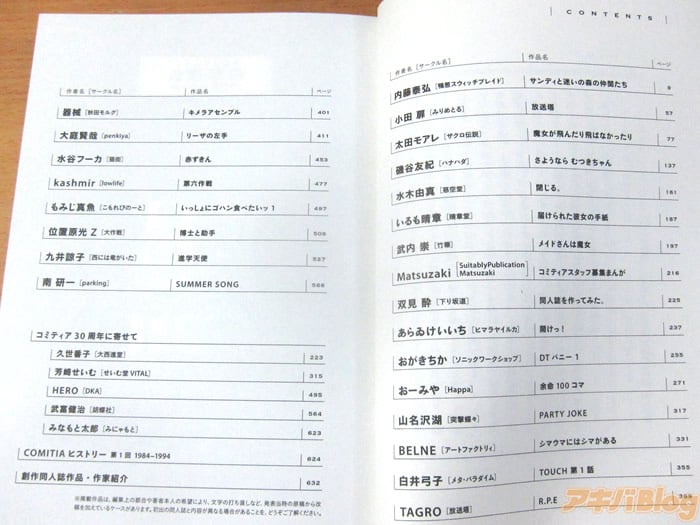 作者名 [サークル名] 作品名 ページ
器械 [秋田モルグ] キメラアセンブル 401
大庭賢哉 [penkiya] リーザの左手 411
水谷フーカ [猫街] 赤ずきん 453
kashmir [lowlife] 第六作戦 477
もみじ真魚 [こもれびのーと] いっしょにゴハン食べたいッ1 497
位置原光Z [大作戦] 博士と助手 509
九井諒子 [西には竜がいた] 進学天使 527
南 研一 [parking] SUMMER SONG 568
コミティア30周年に寄せて
久世番子 [大西進堂] 223
芳崎せいむ [せいむ堂VITAL] 315
HERO [DKA] 495
武富健治 [胡蝶社] 564
みなもと太郎 [みにゃもと] 623
COMITIAヒストリー 第1回 1984–1994 624
創作同人誌作品・作家紹介 632
※掲載作品は、編集上の都合や著者本人の希望により、文字の打ち直しなど、発表当時の原稿から改
稿を加えているケースがあります。初出の同人誌と内容が異なる場合があることを、どうぞご了解ください。
CONTENTS
作者名 [サークル名] 作品名 ページ
内藤泰弘 [鴨葱スウィッチブレイド] サンディと迷いの森の仲間たち 9
小田 扉 [みりめとる] 放送塔 57
太田モアレ [ザクロ伝説] 魔女が飛んだり飛ばなかったり 77
磯谷友紀 [ハナハダ] さようなら むつきちゃん 137
水木由真 [慈空堂] 閉じる。 161
いるも晴章 [晴章堂] 届けられた彼女の手紙 187
武内 崇 [竹箒] メイドさんは魔女 197
Matsuzaki [SuitablyPublication Matsuzaki] コミティアスタッフ募集まんが 216
双見 酔 [下り坂道] 同人誌を作ってみた。 225
あらゐけいいち [ヒマラヤイルカ] 開けっ! 237
おがきちか [ソニックワークショップ] DTバニー1 255
おーみや [Happa] 余命100コマ 271
山名沢湖 [突撃蝶々] PARTY JOKE 317
BELNE [アートファクトリィ] シマウマにはシマがある 331
白井弓子 [メタ・パラダイム] TOUCH 第1話 355
TAGRO [放送塔] R.P.E
アキバBlog